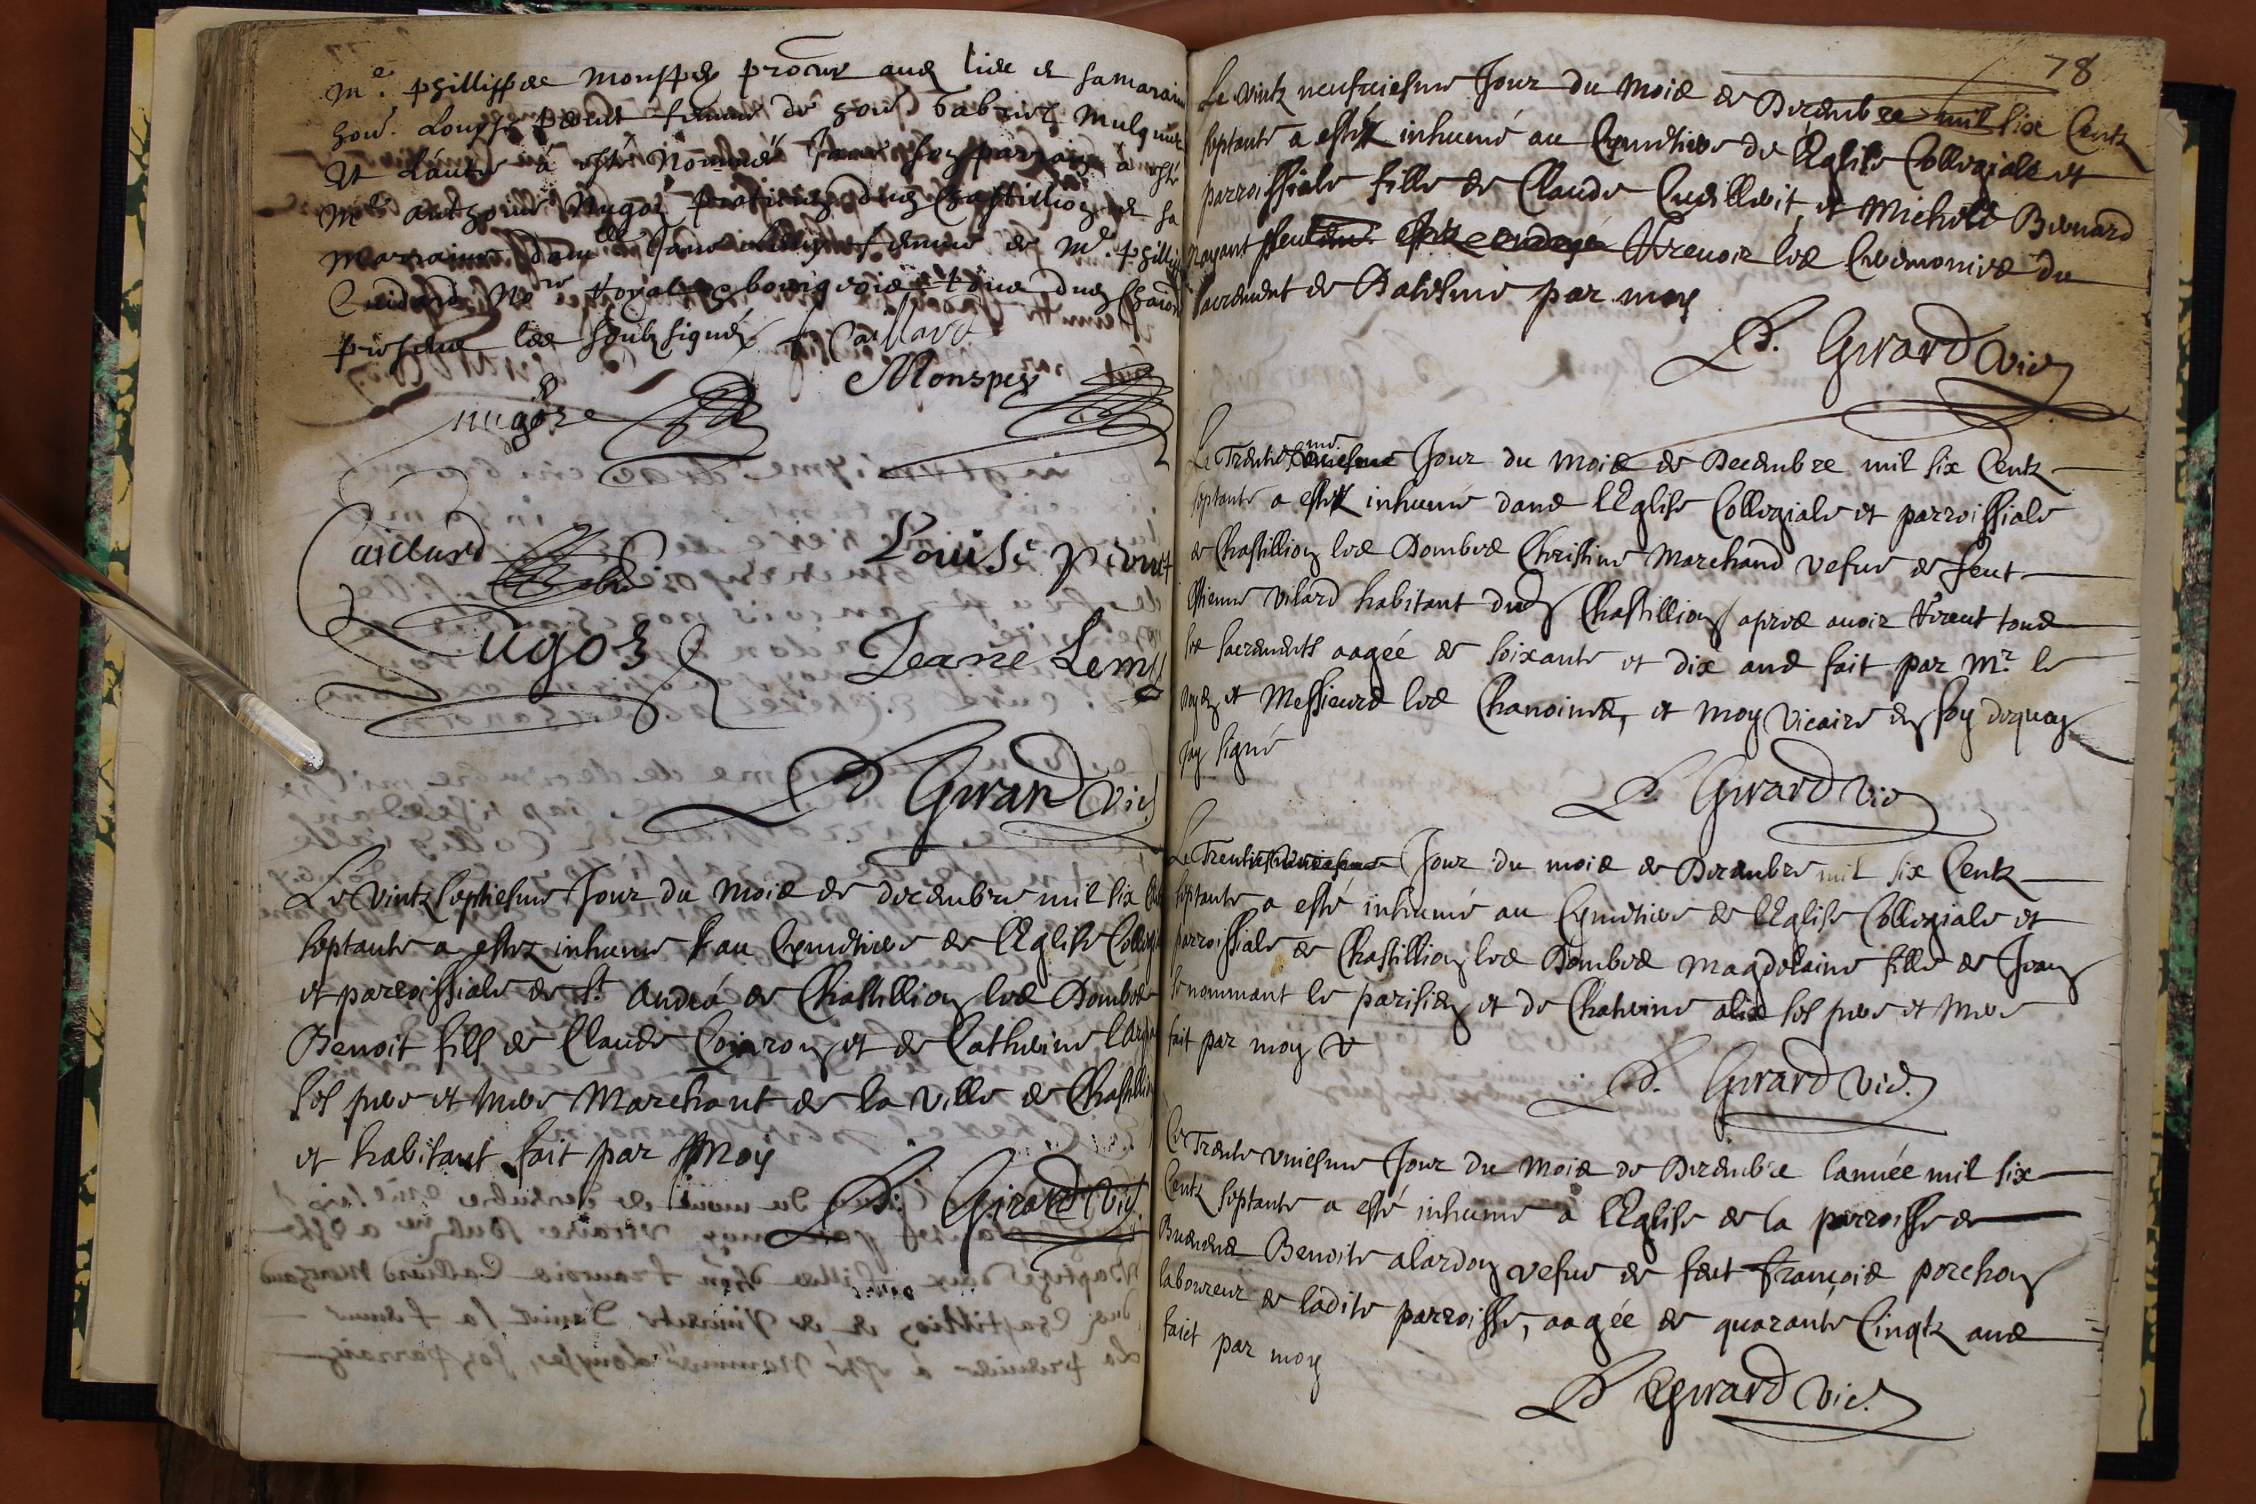 Me. phillippe Monspey procur aud lieu et sa maraine
hon. Louyse penet femme de hon gabriel Mulquier
Et l'autre à esté Nommé Jean son parrain à esté
Me anthoine Nugoz praticien dud Chastillion et sa
Marraine dam.lle Jane Lemy femme de Me. phillip
No.re Royal bourgeois tous dud
presence les soubsignés f. Caillard
Monspey
Caillard
Louise penet
Nugoz
Jeane Lemy
D Girard Vic.
Le Vintz Septiesme Jour du Mois de decembre mil six
septante a estez inhumé au Cymetiere de l'Eglise
et parroissiale de St. André de Chastillion les Dombes
Benoit fils de Claude Coiron et de Catherine
ses pere et mere Marchant de la Ville de Chastillion
et habitant fait par Moy
D. Girard Vic.
78
Le vintz neufviesme Jour du Mois de Decembre mil six Centz
septante a esté inhumé au Cymetiere de l'Eglise Collegiale et
parroissiale fille de Claude Cuilleit, et Michele Benard
n'ayant Recevoir les Ceremonies du
sacrement de Batesme par moy
D. Girard Vic
Le Trente Jour du Mois de Decembre mil six Centz
septante a esté inhumé dans l'Eglise Collegiale et parroissiale
de Chastillion les Dombes Christine Marchand vefve de feut
Estienne Vilard habitant dud Chastillion apres avoir Receut tous
les sacrements aagée de soixante et dix ans fait par Mr. le
Doyen et Messieurs les Chanoines, et Moy Vicaire en foy dequoy
jay signé
D. Girard Vic
Le Jour du mois de Decembre mil six Centz
septante a esté inhumé au Cymetiere de l'Eglise Collegiale et
parroissiale de Chastillion les Dombes Magdelaine fille de Jean
se nommant le parisien et de Chaterine ses pere et Mere
fait par moy V
D. Girard Vic.
Le Trente vniesme Jour du Mois de Decembre lannée mil six
Centz septante a esté inhumé a l'Eglise de la parroisse de
Buenens Benoite alardon vefve de feut françois porchon
laboureur de ladite parroisse, aagée de quarante Cinqtz ans
faict par moy
D Girard Vic.